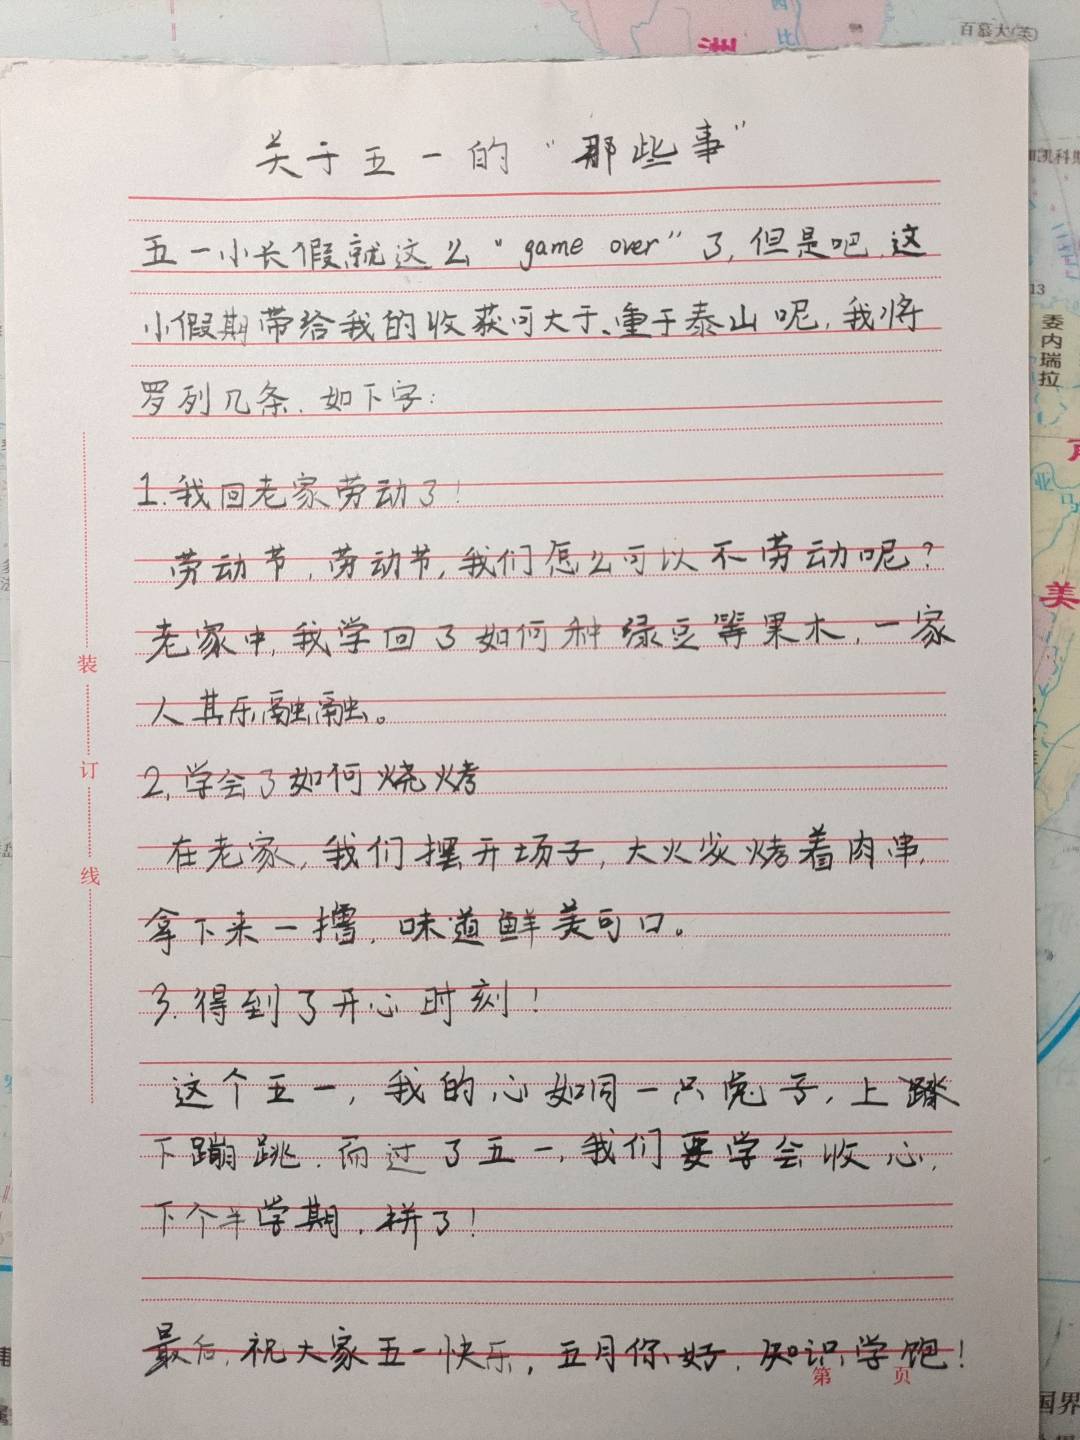 关于五一的“那些事”
五一小长假就这么“game over”了,但是吧,这
小假期带给我的收获可大于、重于泰山呢,我将
罗列几条,如下字:
1.我回老家劳动了!
劳动节,劳动节,我们怎么可以不劳动呢?
老家中,我学回了如何种绿豆等果木,一家
人其乐融融。
2.学会了如何烧烤
在老家,我们摆开场子,大火炭烤着肉串,
拿下来一撸,味道鲜美可口。
3.得到了开心时刻!
这个五一,我的心如同一只兔子,上蹿
下蹦跳,而过了五一,我们要学会收心,
下个半学期,拼了!
最后,祝大家五一快乐,五月你好,知识学饱!
装
订
线
第 页
洲
百慕大(美)
委内瑞拉
亚马
美
国界